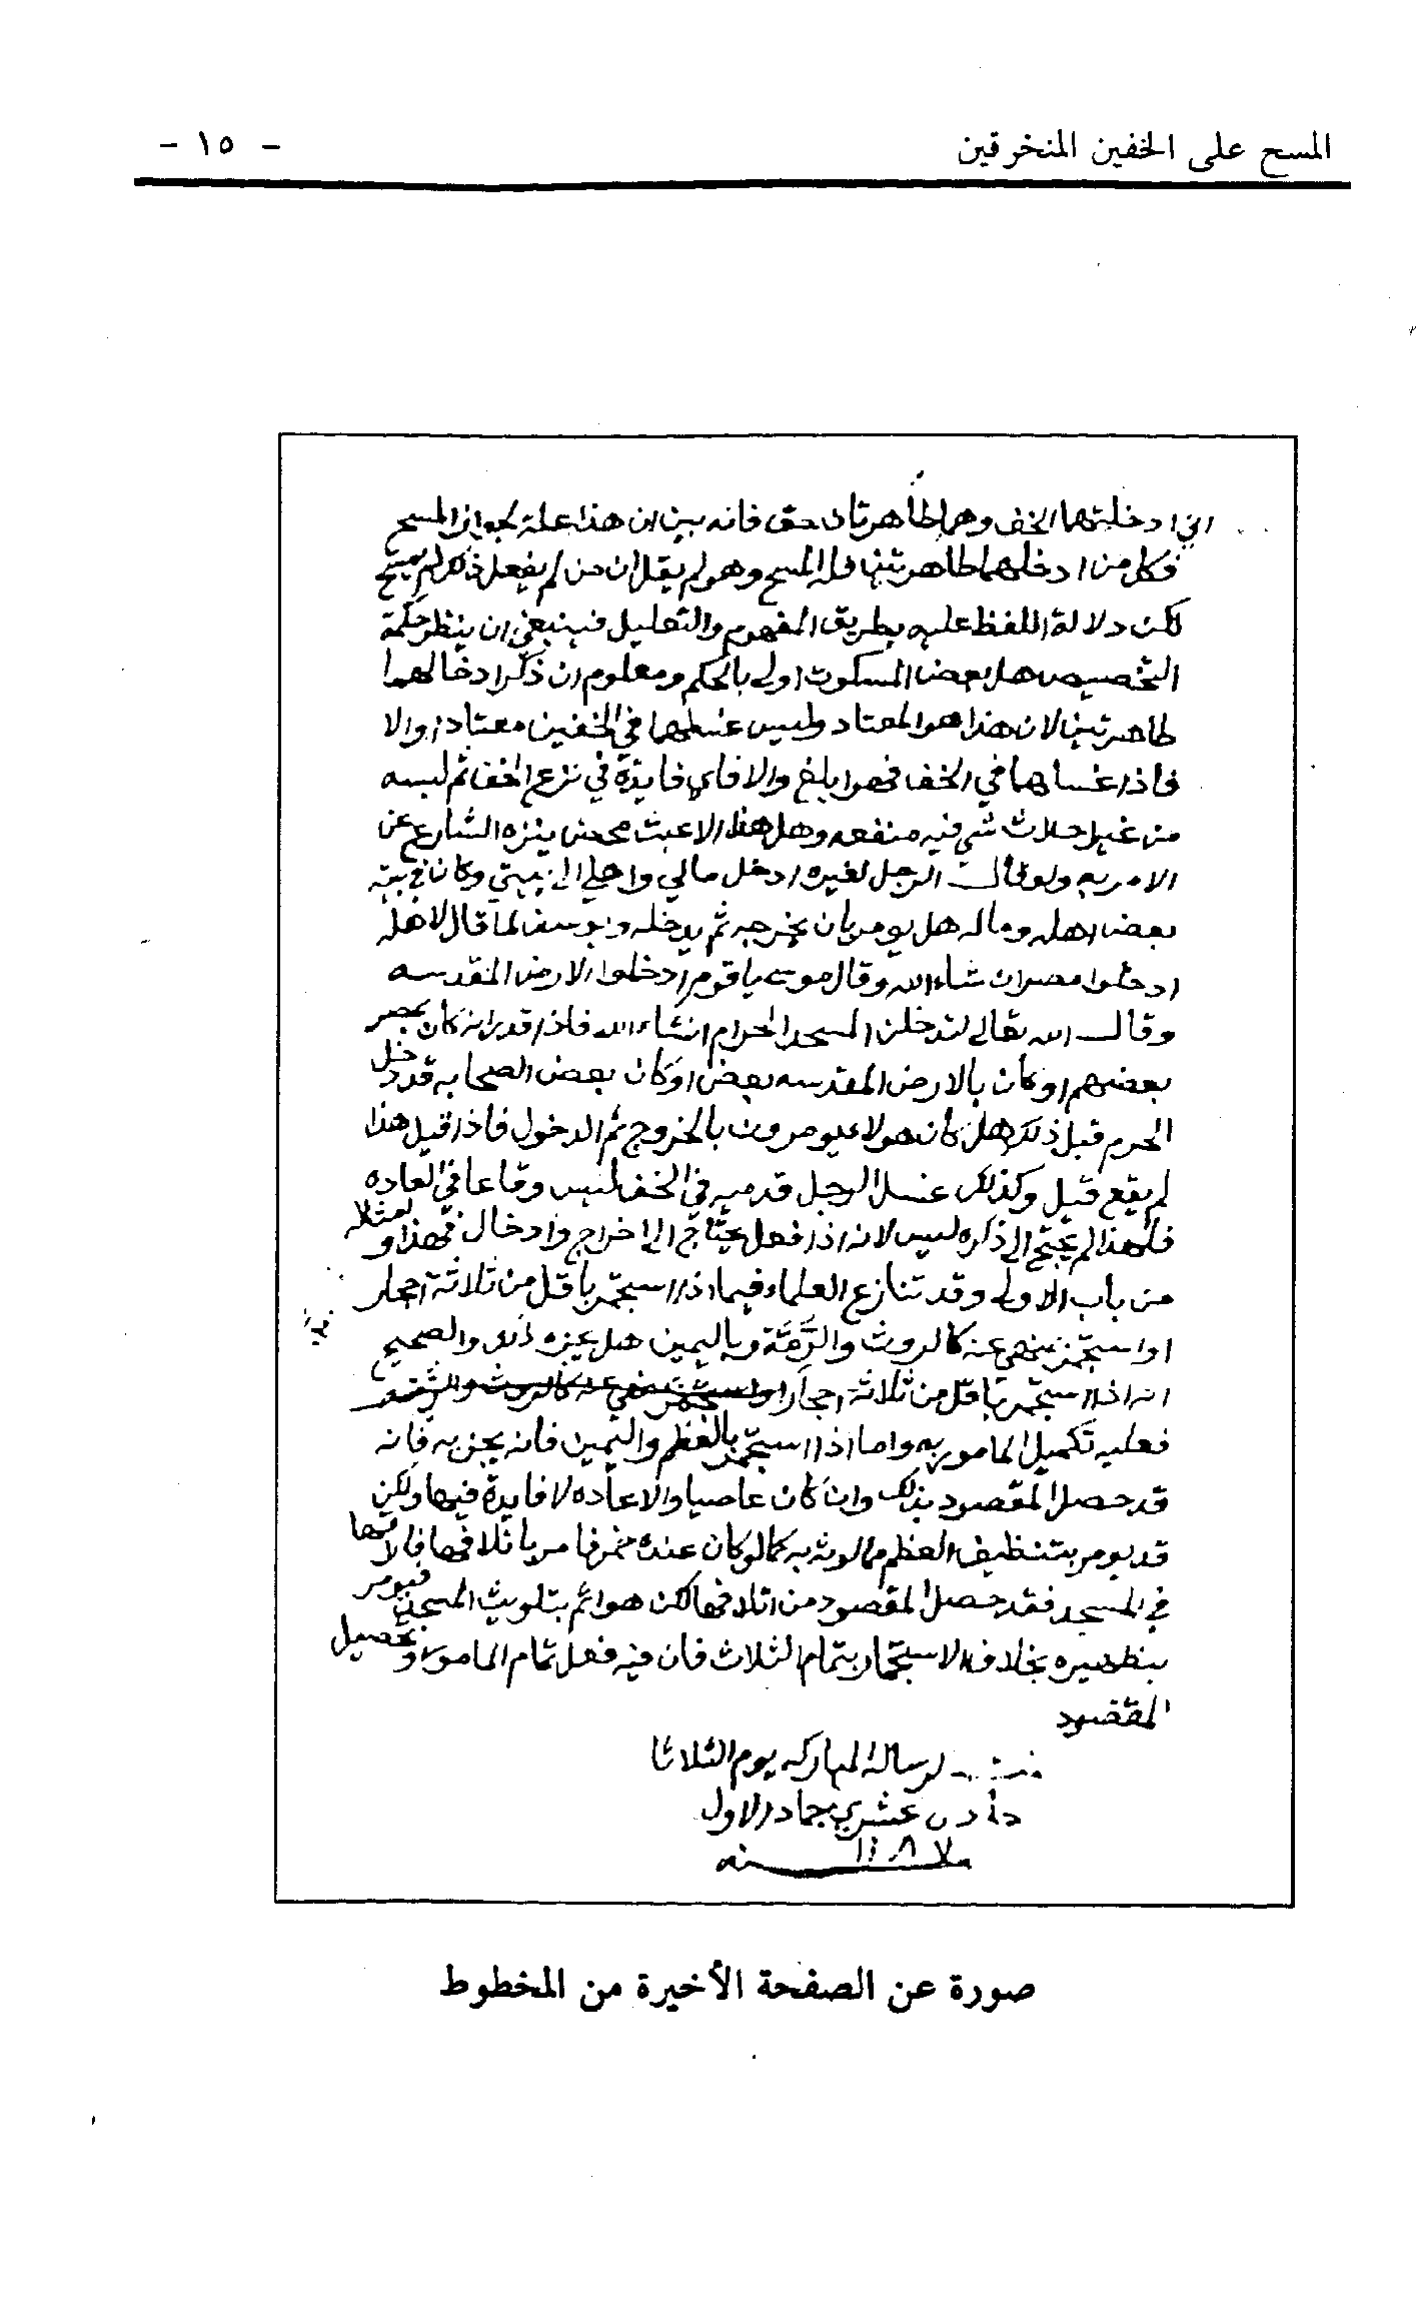 المسح على الخفين المنخرقين
- ١٥ -
اني ادخلتهما الخف وهما طاهرتان حق فانه بين ان هذا علة لجواز المسح
فكل من ادخلهما طاهرتين فله المسح وهو لم يقل ان من لم يفعل ذلك لم يمسح
لكن دلالة اللفظ عليه بطريق المفهوم والتعليل فينبغي ان ينظر حكمة
التخصيص هل بعض المسكوت اولى بالحكم ومعلوم ان ذكر ادخالهما
طاهرتين لان هذا هو المعتاد وليس غسلهما في الخفين معتادا والا
فاذا غسلهما في الخف فهو ابلغ والا فاي فايدة في نزع الخف ثم لبسه
من غير حدث شي فيه منفعه وهل هذا الا عبث محض ينزه الشارع عن
الامر به ولو قال الرجل لغيره ادخل مالي واهلي الى بيتي وكان في بيته
بعض اهله وماله هل يومر بان يخرجه ثم يدخله ويوسف لما قال لاهله
ادخلوا مصر ان شاء الله وقال موسى ياقوم ادخلوا الارض المقدسه
وقال الله تعالى لتدخلن المسجد الحرام انشاء الله فاذا قدر انه كان بمصر
بعضهم او كان بالارض المقدسه بعض او كان بعض الصحابه قد دخل
الحرم قبل ذلك هل كان هولاء يومرون بالخروج ثم الدخول فاذا قيل هذا
لم يقع قيل وكذلك غسل الرجل قدميه في الخف ليس وقاعا في العاده
فلهذا لم يحتج الى ذكره ليس لانه اذا فعل يحتاج الى اخراج وادخال فهذا وامثاله
من باب الاولى وقد تنازع العلماء فيما اذا استجمر باقل من ثلاثة احجار
او استجمر بمنهي عنه كالروث والرمة وباليمين هل يجزه ذلك والصحيح
انه اذا استجمر باقل من ثلاثة احجار او استجمر بمنهي عنه كالروث والرمة
فعليه تكميل المامور به واما اذا استجمر بالعظم واليمين فانه يجزيه فانه
قد حصل المقصود بذلك وان كان عاصيا والاعاده لا فايدة فيها ولكن
قد يومر بتنظيف العظم مما لوثه به كما لو كان عنده خمر فامر باتلافها فاراقها
في المسجد فقد حصل المقصود من اتلافها لكن هو اثم بتلويث المسجد فيومر
بتطهيره بخلاف الاستجمار بتمام الثلاث فان فيه فعل تمام المامور وتحصيل
المقصود
الرساله المباركه يوم الثلاثا
جماد الاول
١١٨٧ سنه
صورة عن الصفحة الأخيرة من المخطوط